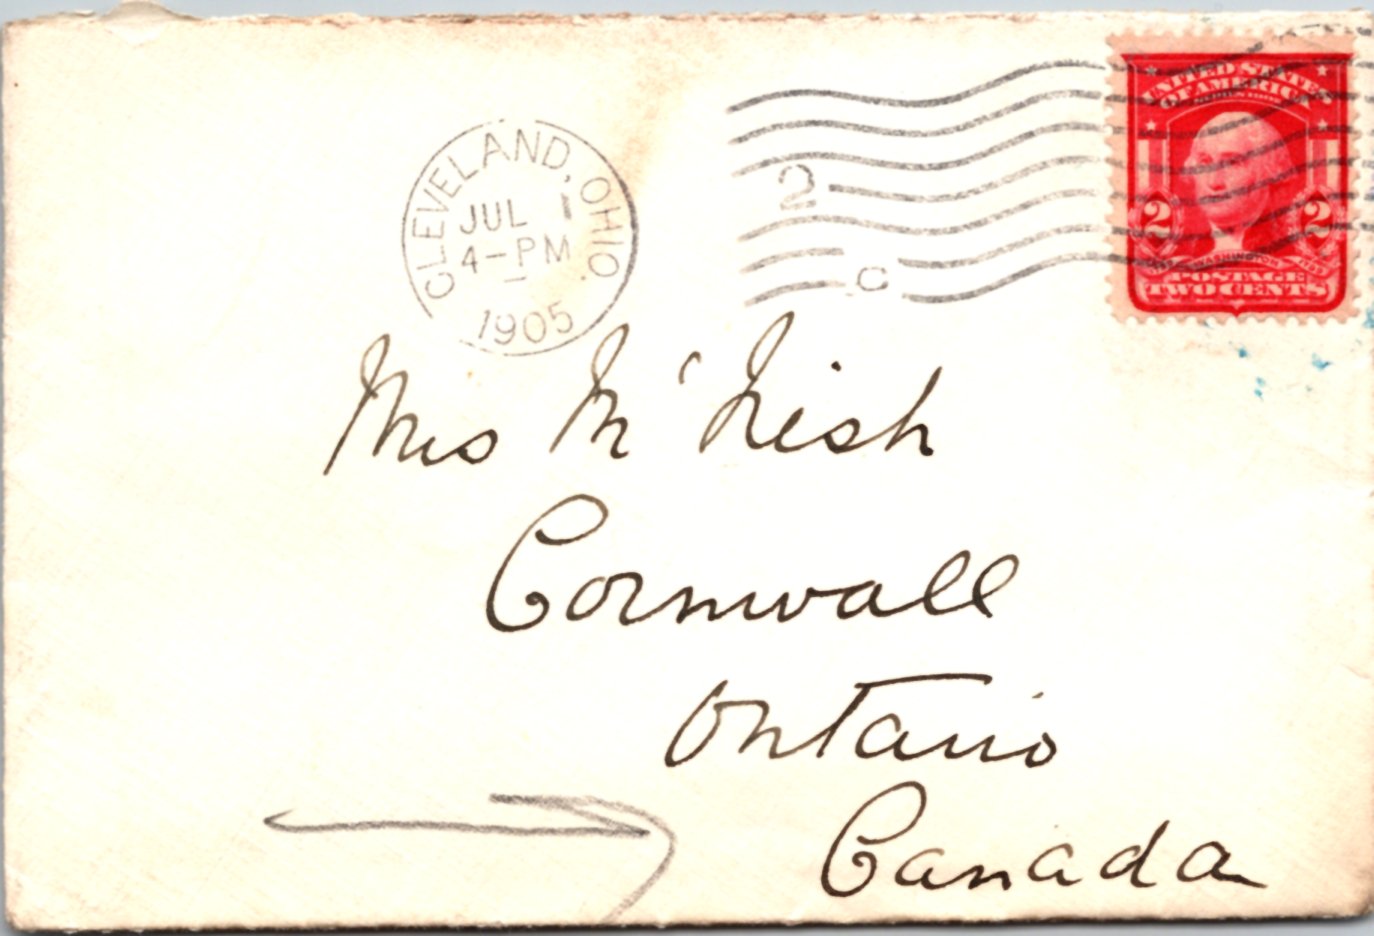 CLEVELAND, OHIO.
JUL 1
4-PM
1905
2
C
UNITED STATES
OF AMERICA
2 2
WASHINGTON
POSTAGE
TWO CENTS
Mrs Mc'Nish
Cornwall
Ontario
Canada